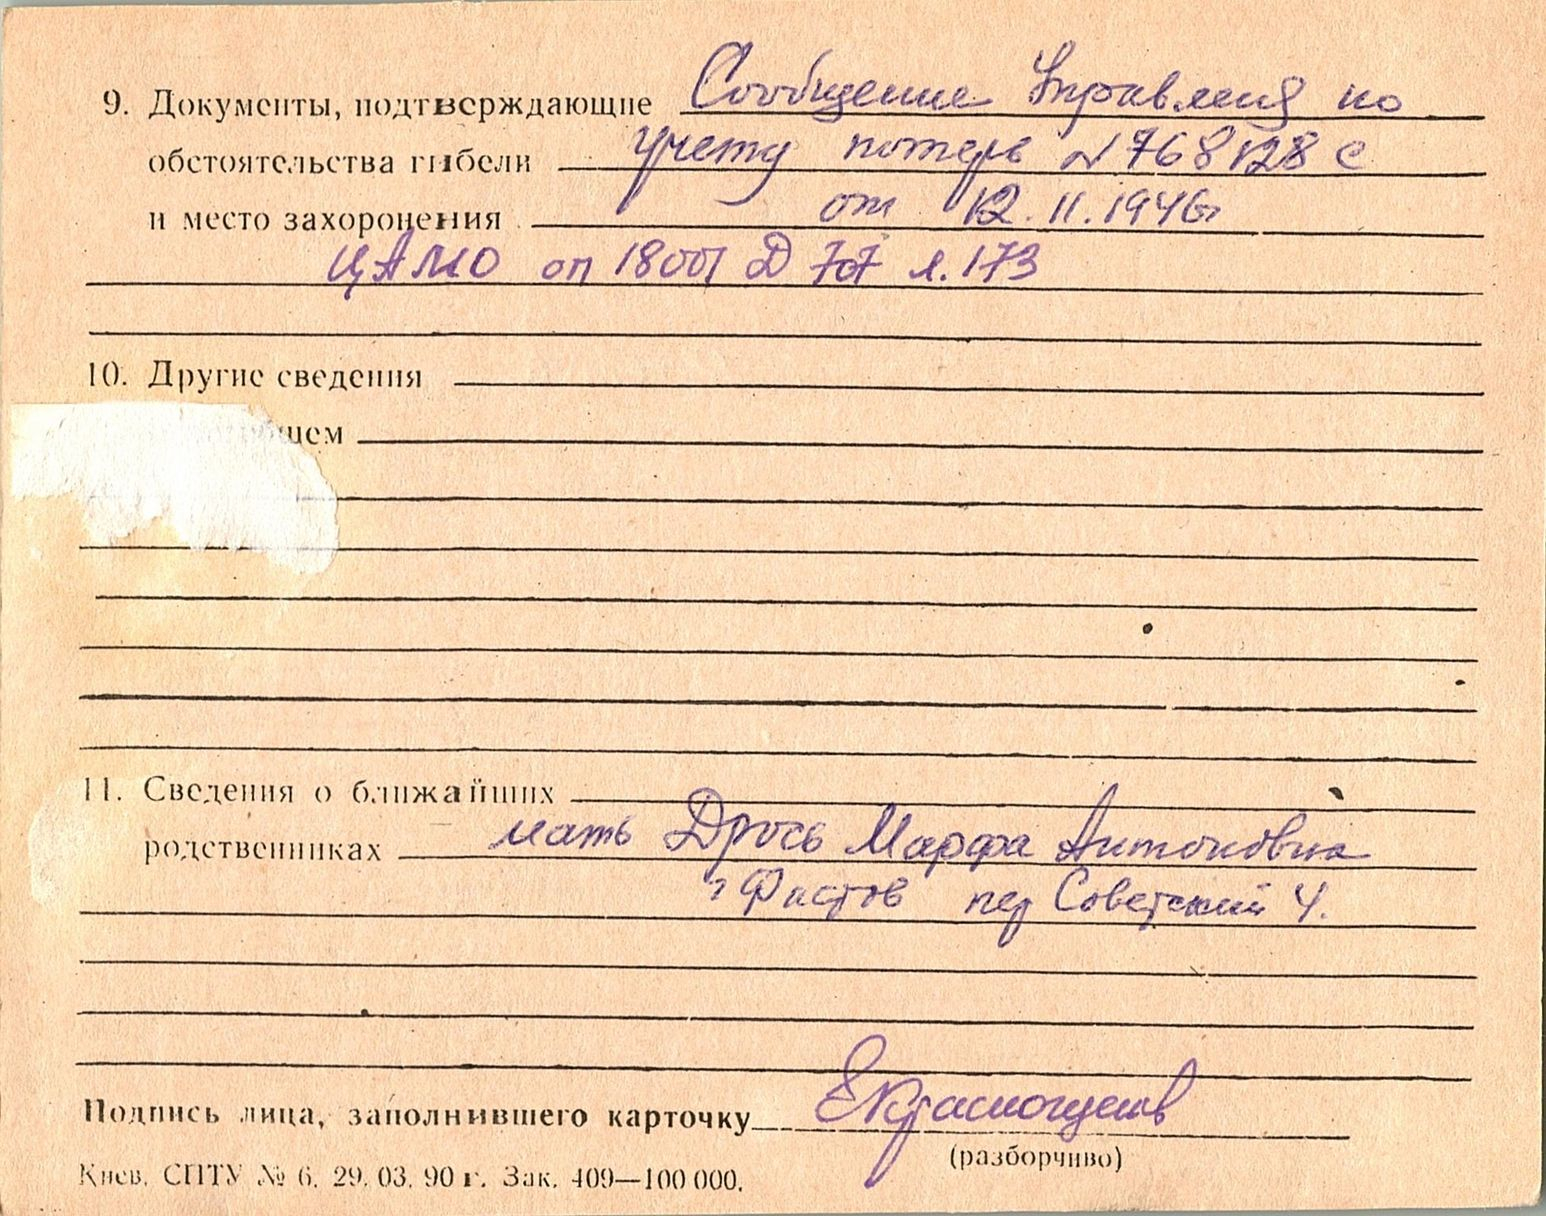 9. Документы, подтверждающие Сообщение Управления по
обстоятельства гибели учету потерь № 768128 с
и место захоронения от 12.11.1946г
ЦАМО оп 18001 Д 707 л. 173
10. Другие сведения
11. Сведения о ближайших
родственниках мать Дрось Марфа Антоновна
г Фастов пер Советский 4.
Подпись лица, заполнившего карточку
(разборчиво)
Киев. СПТУ № 6. 29. 03. 90 г. Зак. 409—100 000.